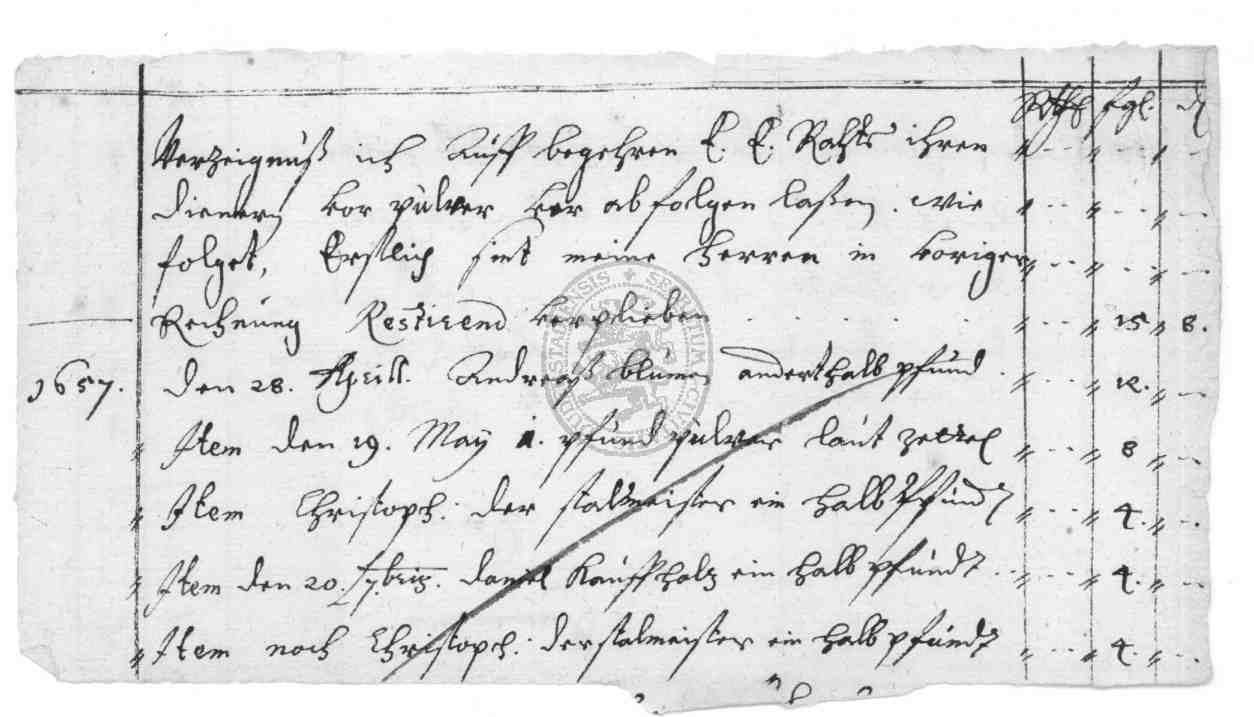 Rthl ßgl. d
Verzeignuß ich Auff begehren E. E. Rahts ihren
dienern vor pulver hab abfolgen laßen. wie
folget, Erstlich sint meine Herren in voriger
Rechnung Restirend verplieben 15 8.
1657. den 28. Aprill. Andreaß blumen anderthalb pfund 12.
Item den 19. May 1. pfund pulver laut zettel 8
Item Christoph: der stalmeister ein halb Pfundt 4.
Item den 20. 7briz. daniel Kauffholz ein halb pfundt 4.
Item noch Christoph: der stalmeister ein halb pfundt 4.